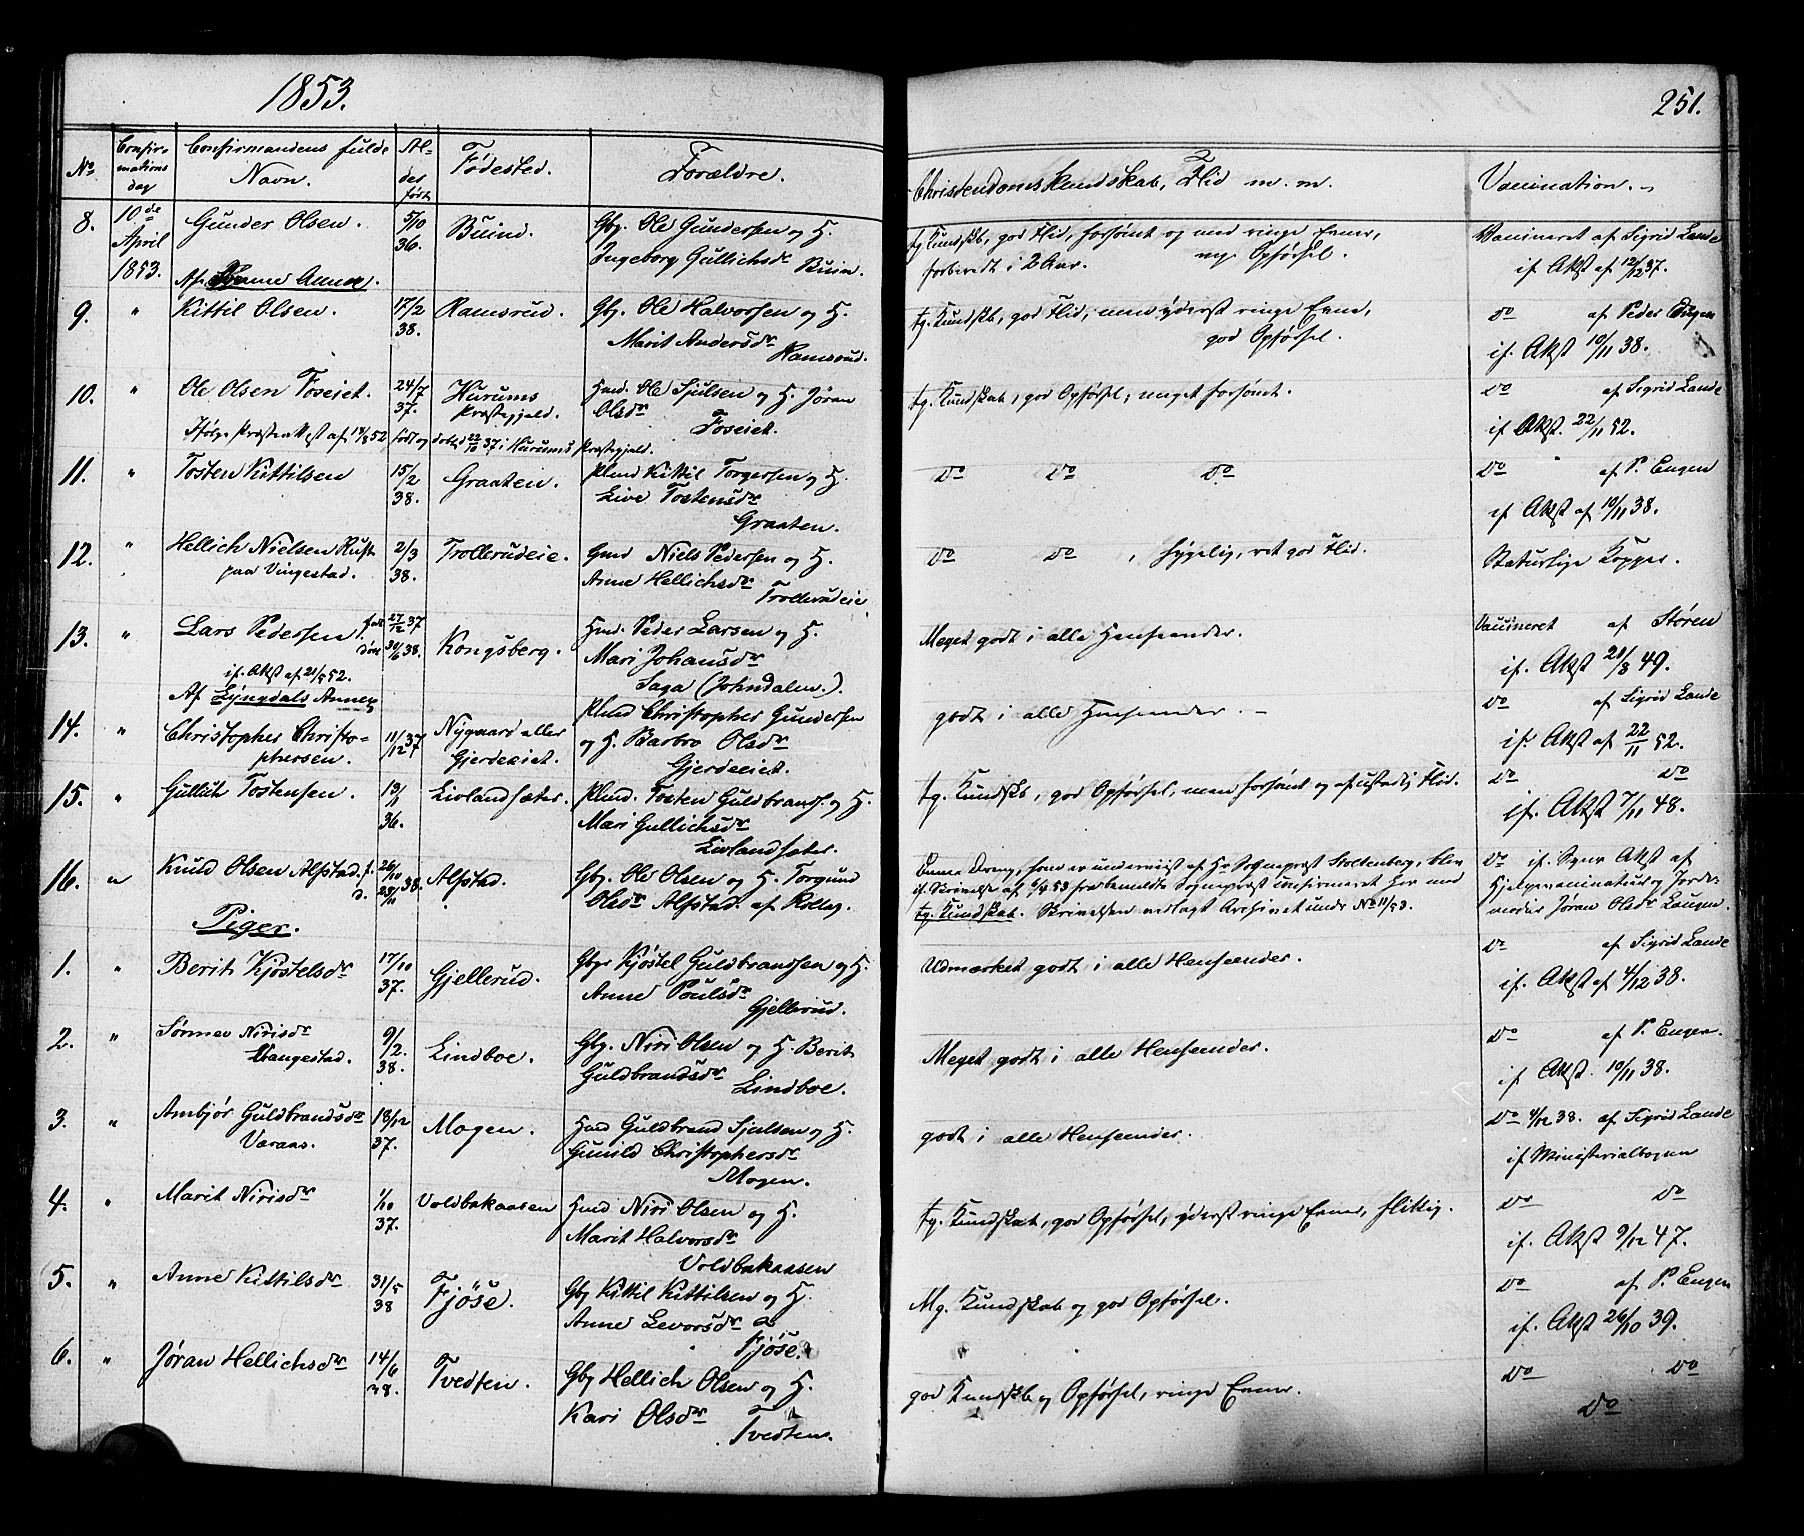 1853.
251.
No
Confir-
mations
dag
Confirmandens fulde
Navn.
Al-
der
født
Fødested.
Forældre.
Christendomskundskab, Flid m. m.
Vaccination.
8. 10de April 1853. Gunder Olsen. 5/10 36. Buind. Gbg. Ole Gundersen og H.
Ingeborg Gullichsdr Buin.
tg. Kundskb, god Flid, forsømt og med ringe Evner,
forberedt i 2 Aar. mg. Opførsel.
Vaccineret af Sigrid Lande
if. Atst af 12/12 37.
Af Annex.
9. " Kittil Olsen. 17/2 38. Ramsrud. Gbg. Ole Halvorsen og H.
Marit Andersdr Ramsrud.
tg. Kundskb, god Flid, men yderst ringe Evner,
god Opførsel.
do af Peder Eugen
if. Atst 10/11 38.
10. " Ole Olsen Foseiet. 24/7 37. Hurums Præstegjeld. Hmd. Ole Sjulsen og H. Jøran
Olsdr Foseiet.
tg. Kundskab, god Opførsel, meget forsømt.
do af Sigrid Lande
if Atst. 22/11 52.
Ifølge Præsteattest af 14/8 52 født og døbt 22/10 37 i Hurums Præstegjeld.
11. " Tosten Kittilsen 15/2 38. Graaten. Plmd Kittil Torgersen og H.
Live Tostensdr
Graaten.
do do do
do af P. Eugen
if Atst af 10/11 38.
12. " Hellich Nielsen Rust
paa Vingestad. 2/3 38. Trollerudeie. Gmd Niels Pedersen og H.
Anne Hellichsdr
Trollerudeie
do do , sygelig, ret god Flid.
Naturlige Kopper.
13. " Lars Pedersen født 27/12 37
døbt 30/6 38. Kongsberg. Hmd. Peder Larsen og H.
Mari Johansdr
Saga (Johndalen.).
if. Atst af 21/5 52.
Meget godt i alle Henseender.
Vaccineret af Støren
if. Atst 28/8 49.
Af Lyngdals Annex
14. " Christopher Christo-
phersen. 11/12 37 Nygaard eller
Gjerdeeiet. Plmd Christopher Gundersen
og H. Barbro Olsdr
Gjerdeeiet.
godt i alle Henseender. -
do af Sigrid Lande
if. Atst af 22/11 52.
15. " Gullich Tostensen. 13/11 36. Livlandsæter. Plmd. Tosten Guldbrands. og H.
Mari Gullichsdr
Livlandsæter.
tg. Kundskb, god Opførsel, men forsømt og ustadig Flid.
do do
if. Atst 7/11 48.
16. " Knud Olsen Alfstad. f. 26/10
d. 28/11 38. Alfstad. Gbg. Ole Olsen og H. Torgund
Olsdr Alfstad. af Rollag.
Denne Dreng, som er underviist af Hr Sognepræst Stoltenberg, blev
if Skrivelse af 6/4 53 fra bemeldte Sognepræst confirmeret her med
tg. Kundskab. Skrivelsen vedlagt Archivet under No 11/53.
do if. Atst af
Hjelpevaccinatur og Jorde-
moder Jøran Olsdr Laugen.
Piger.
1. " Berit Kjøstelsdr 17/10 37. Gjellerud. Gbgr Kjøstel Guldbrandsen og H.
Anne Poulsdr
Gjellerud.
Udmærket godt i alle Henseender.
do af Sigrid Lande
if. Atst af 4/12 38.
2. " Nirisdr
Vangestad. 9/2 38. Lindboe. Gbg. Niri Olsen og H. Berit
Guldbrandsdr
Lindboe.
Meget godt i alle Henseender.
do af P. Eugen.
if Atst. 10/11 38.
3. " Ambjør Guldbrandsdr
Varaas. 18/12 37. Mogen. Hmd Guldbrand Sjulsen og H.
Gunild Christophersdr
Mogen.
godt i alle Henseender.
do 4/12 38. af Sigrid Lande
if Ministerialbogen
4. " Marit Nirisdr 1/10 37. Voldbakaasen Hmd Niri Olsen og H.
Marit Halvorsdr
Voldbakaasen
tg. Kundskab, god Opførsel, yderst ringe Evner, flittig.
do do
if. Atst 9/12 47.
5. " Anne Kittilsdr 31/5 38 Fjøse. Gbg Kittil Kittilsen og H.
Anne Levorsdr
Fjøse.
Mg. Kundskab og god Opførsel.
do af P. Eugen
if. Atst 26/10 39.
6. " Jøran Hellichsdr 14/6 38. Tvedten. Gbg Hellich Olsen og H.
Kari Olsdr
Tvedten.
god Kundskb og Opførsel, ringe Evner.
do do
do